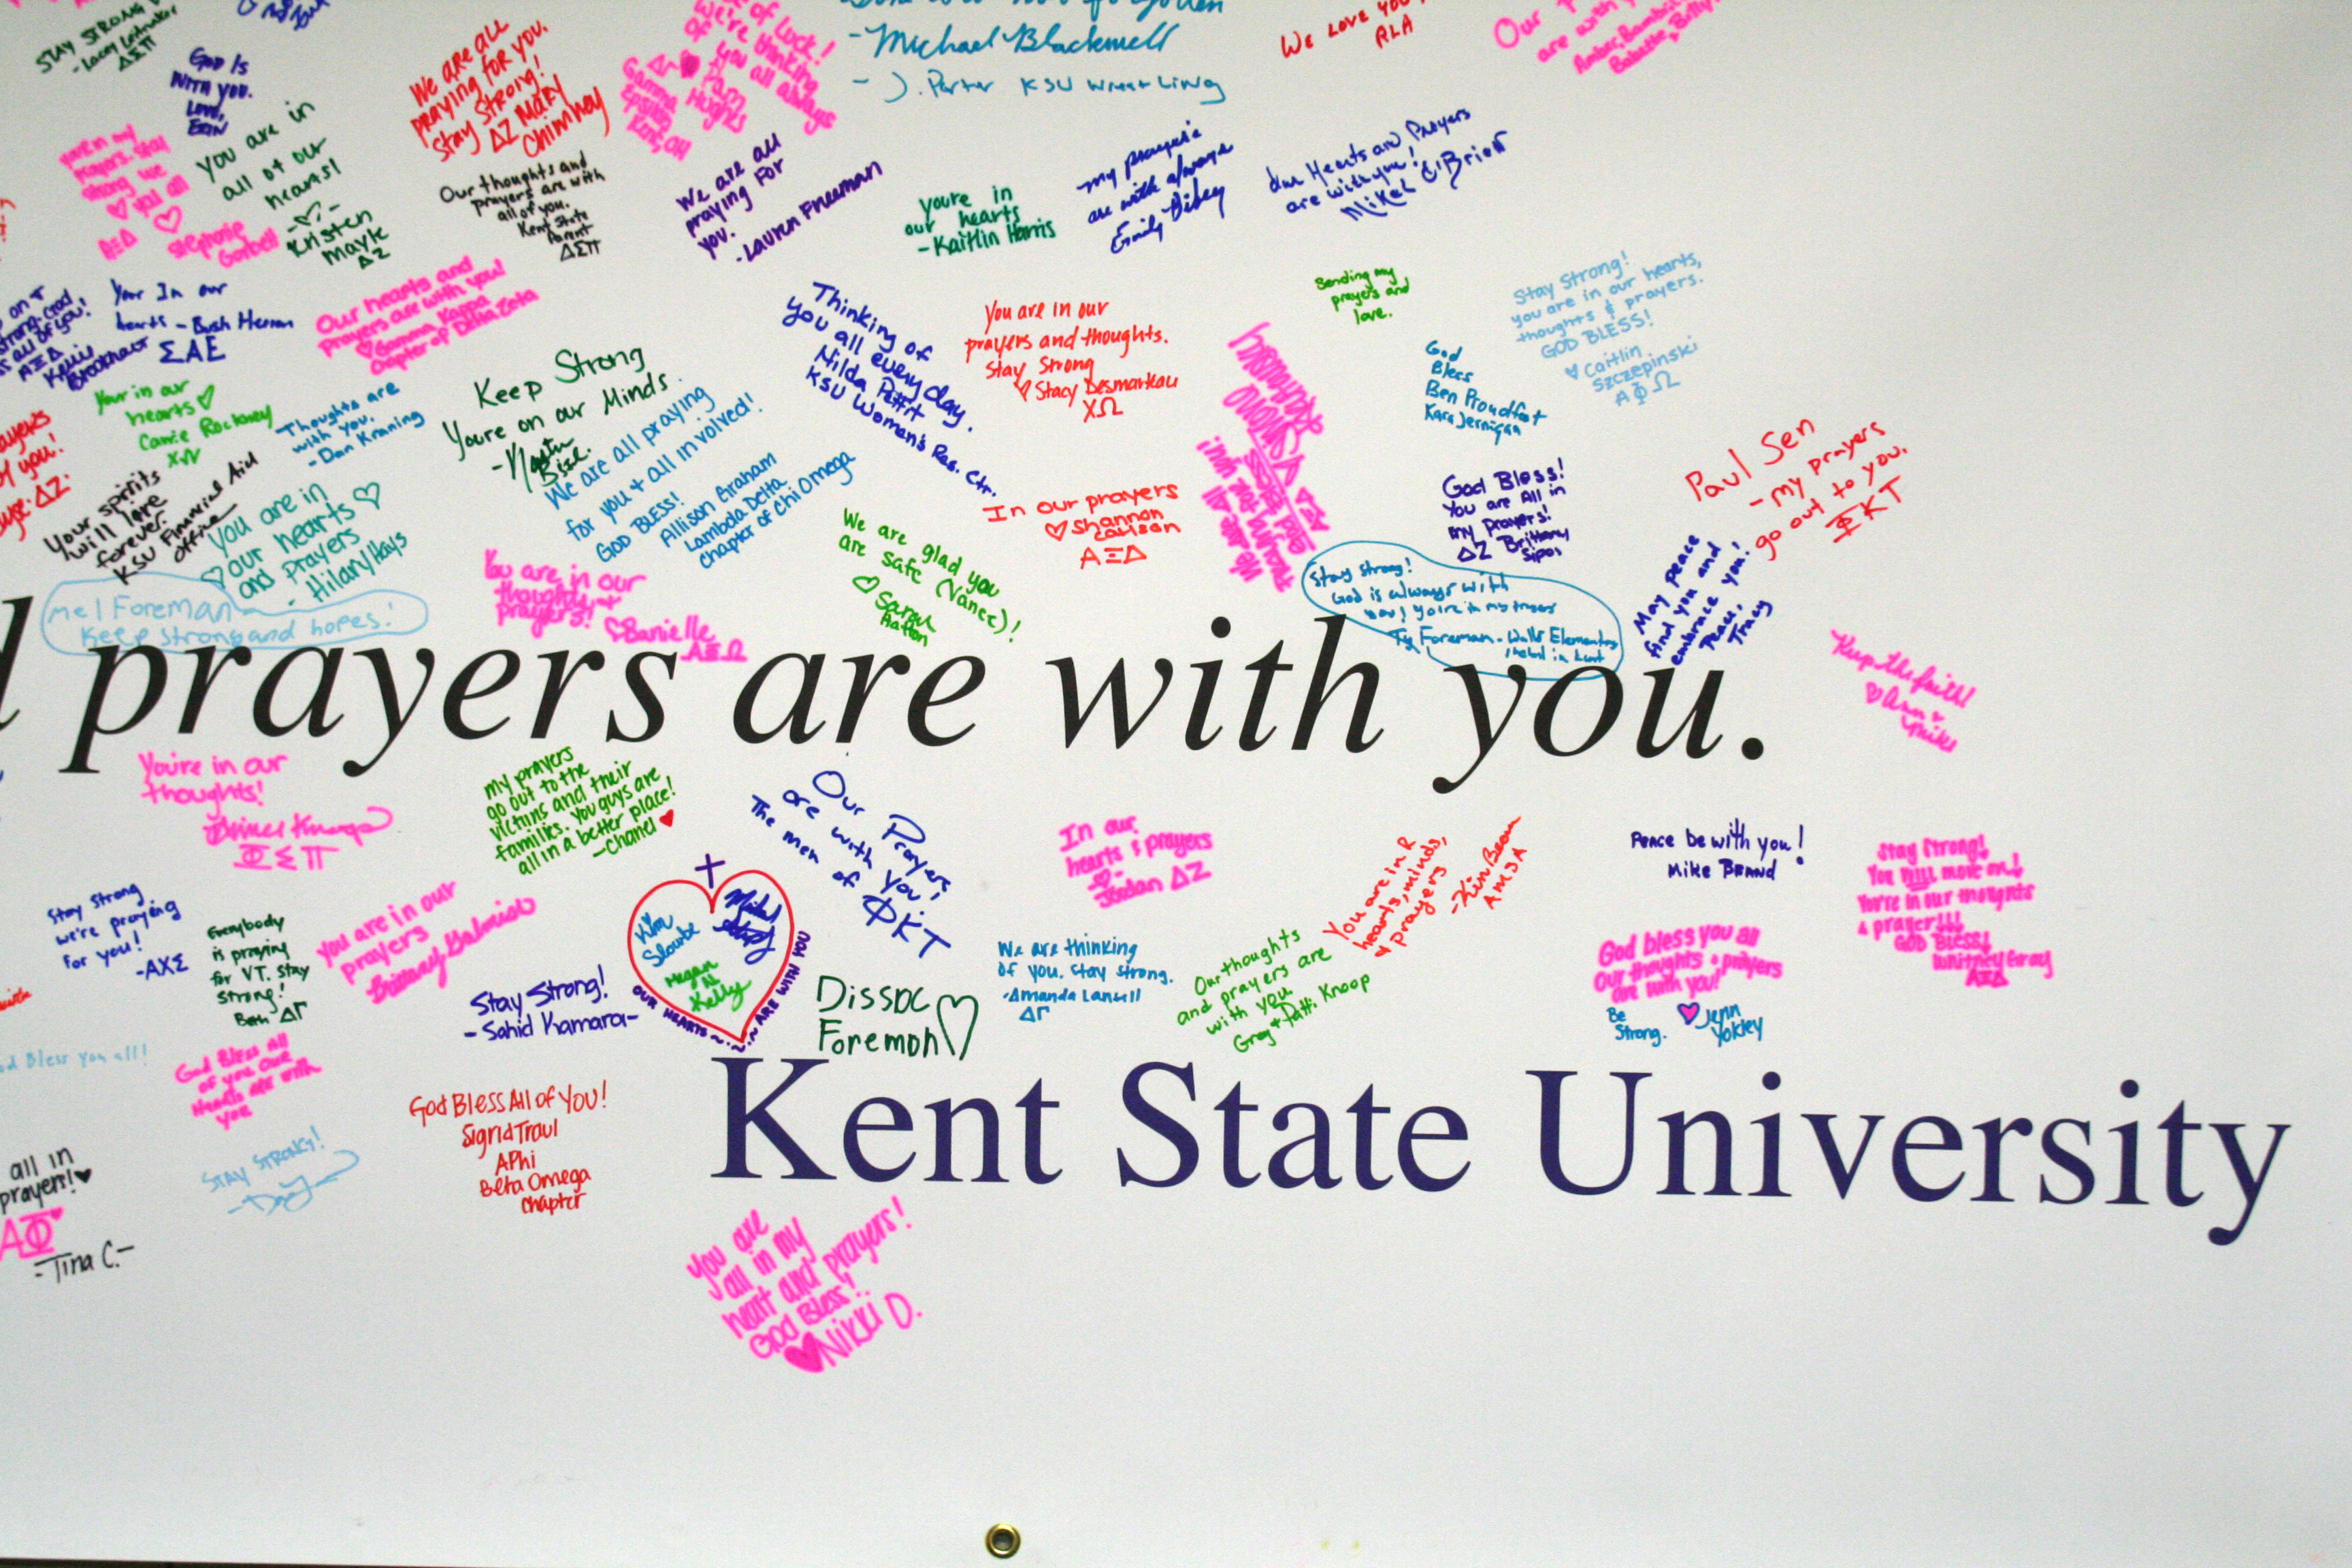 STAY STRONG
ΔΣΠ
GOD IS
WITH YOU.
LOVE,
ERIN
We are all
praying for you.
Stay Strong!
ΔZ Mary
Chimney
of Luck!
We're thinking
of you all always
Gamma
Epsilon
Kent, OH
- Michael Blackwell
- J. Porter KSU Wrestling
We Love you
RLA
Our
are with
you are in
all of our
hearts!
Kristen
Mayle
ΔZ
Our thoughts and
prayers are with
all of you.
Kent State
Parent
ΔΣΠ
We are all
praying For
you.
- Lauren Freeman
you're in
our hearts
- Kaitlin Harris
my prayers
are with always
Emily
Our Hearts and Prayers
are with you!
Mikel O'Brien
you're in my
prayers. Stay
strong we
♡ you all
AΞΔ
Stephanie
Your In our
hearts -
ΣAE
Our hearts and
Prayers are with you!
♡ Gamma Kappa
Chapter of Delta Zeta
Thinking of
you all every day.
Nilda Pettit
KSU Women's Res. Ctr.
You are in our
prayers and thoughts.
Stay Strong
♡ Stacy Desmarteau
XΩ
Sending my
prayers and
love.
Stay Strong!
you are in our hearts,
thoughts & prayers.
GOD BLESS!
♡ Caitlin
Szczepinski
AΦΩ
God
Bless
Ben Proudfoot
Kara Jernigan
Keep Strong
You're on our Minds.
Your in our
hearts ♡
Carrie Rockney
Thoughts are
with you.
- Dan Kraning
We are all praying
for you + all involved!
GOD BLESS!
Allison Graham
Lambda Delta
Chapter of Chi Omega
Your spirits
will love
forever.
KSU Financial Aid
office
you are in
our hearts ♡
and prayers
- Hilary Hays
We are glad you
are safe (Vance)!
♡ Sarah
In our prayers
♡ Shannon
Carlson
AΞΔ
God Bless!
You are All in
my Prayers!
ΔZ Brittany
Sipos
Paul Sen
- my prayers
go out to you.
ΦKT
Mel Foreman
Keep strong and hopes!
You are in our
thoughts +
prayers!
♡ Danielle
AΞΩ
Stay strong!
God is always with
you; you're in my prayers
Ty Foreman - Walls Elementary
School in Kent
May peace
find you and
embrace you!
Peace,
Tracy
prayers are with you.
Keep the faith!
♡ Ann +
Mike
You're in our
thoughts!
ΦΣΠ
my prayers
go out to the
victims and their
families. You guys are
all in a better place!
- Chanel ♥
Our Prayers
are with you!
The men of ΦKT
In our
hearts & prayers
♡
Jordan ΔZ
You are in R
hearts, minds,
& prayers
- Kim Beam
AMSA
Peace be with you!
Mike Brand
Stay Strong!
You WILL move on!
You're in our thoughts
& prayer!!!
GOD Bless!
Whitney Gray
AΞΔ
Stay strong
we're praying
for you!
- AXΣ
Everybody
is praying
for VT. Stay
strong!
Beth ΔΓ
you are in our
prayers
Stay Strong!
- Sahid Kamara -
Kim
Slaube
Megan
N.
Kelly
OUR HEARTS ~ ~ ARE WITH YOU
Dissoc
Foreman ♡
We are thinking
of you. Stay strong.
- Amanda
ΔΓ
Our thoughts
and prayers are
with you
Greg + Patti Knoop
God bless you all
Our thoughts & prayers
are with you!
Be
Strong.
♥ Jenn
Yokley
God Bless you all!
God Bless all
of you Our
Hearts are with
you
God Bless All of YOU!
Sigrid Traul
APhi
Beta Omega
Chapter
Kent State University
STAY STRONG!
all in
prayers! ♥
AΦ
- Tina C. -
You are
all in my
heart and prayers!
God Bless!
♥ Nikki D.